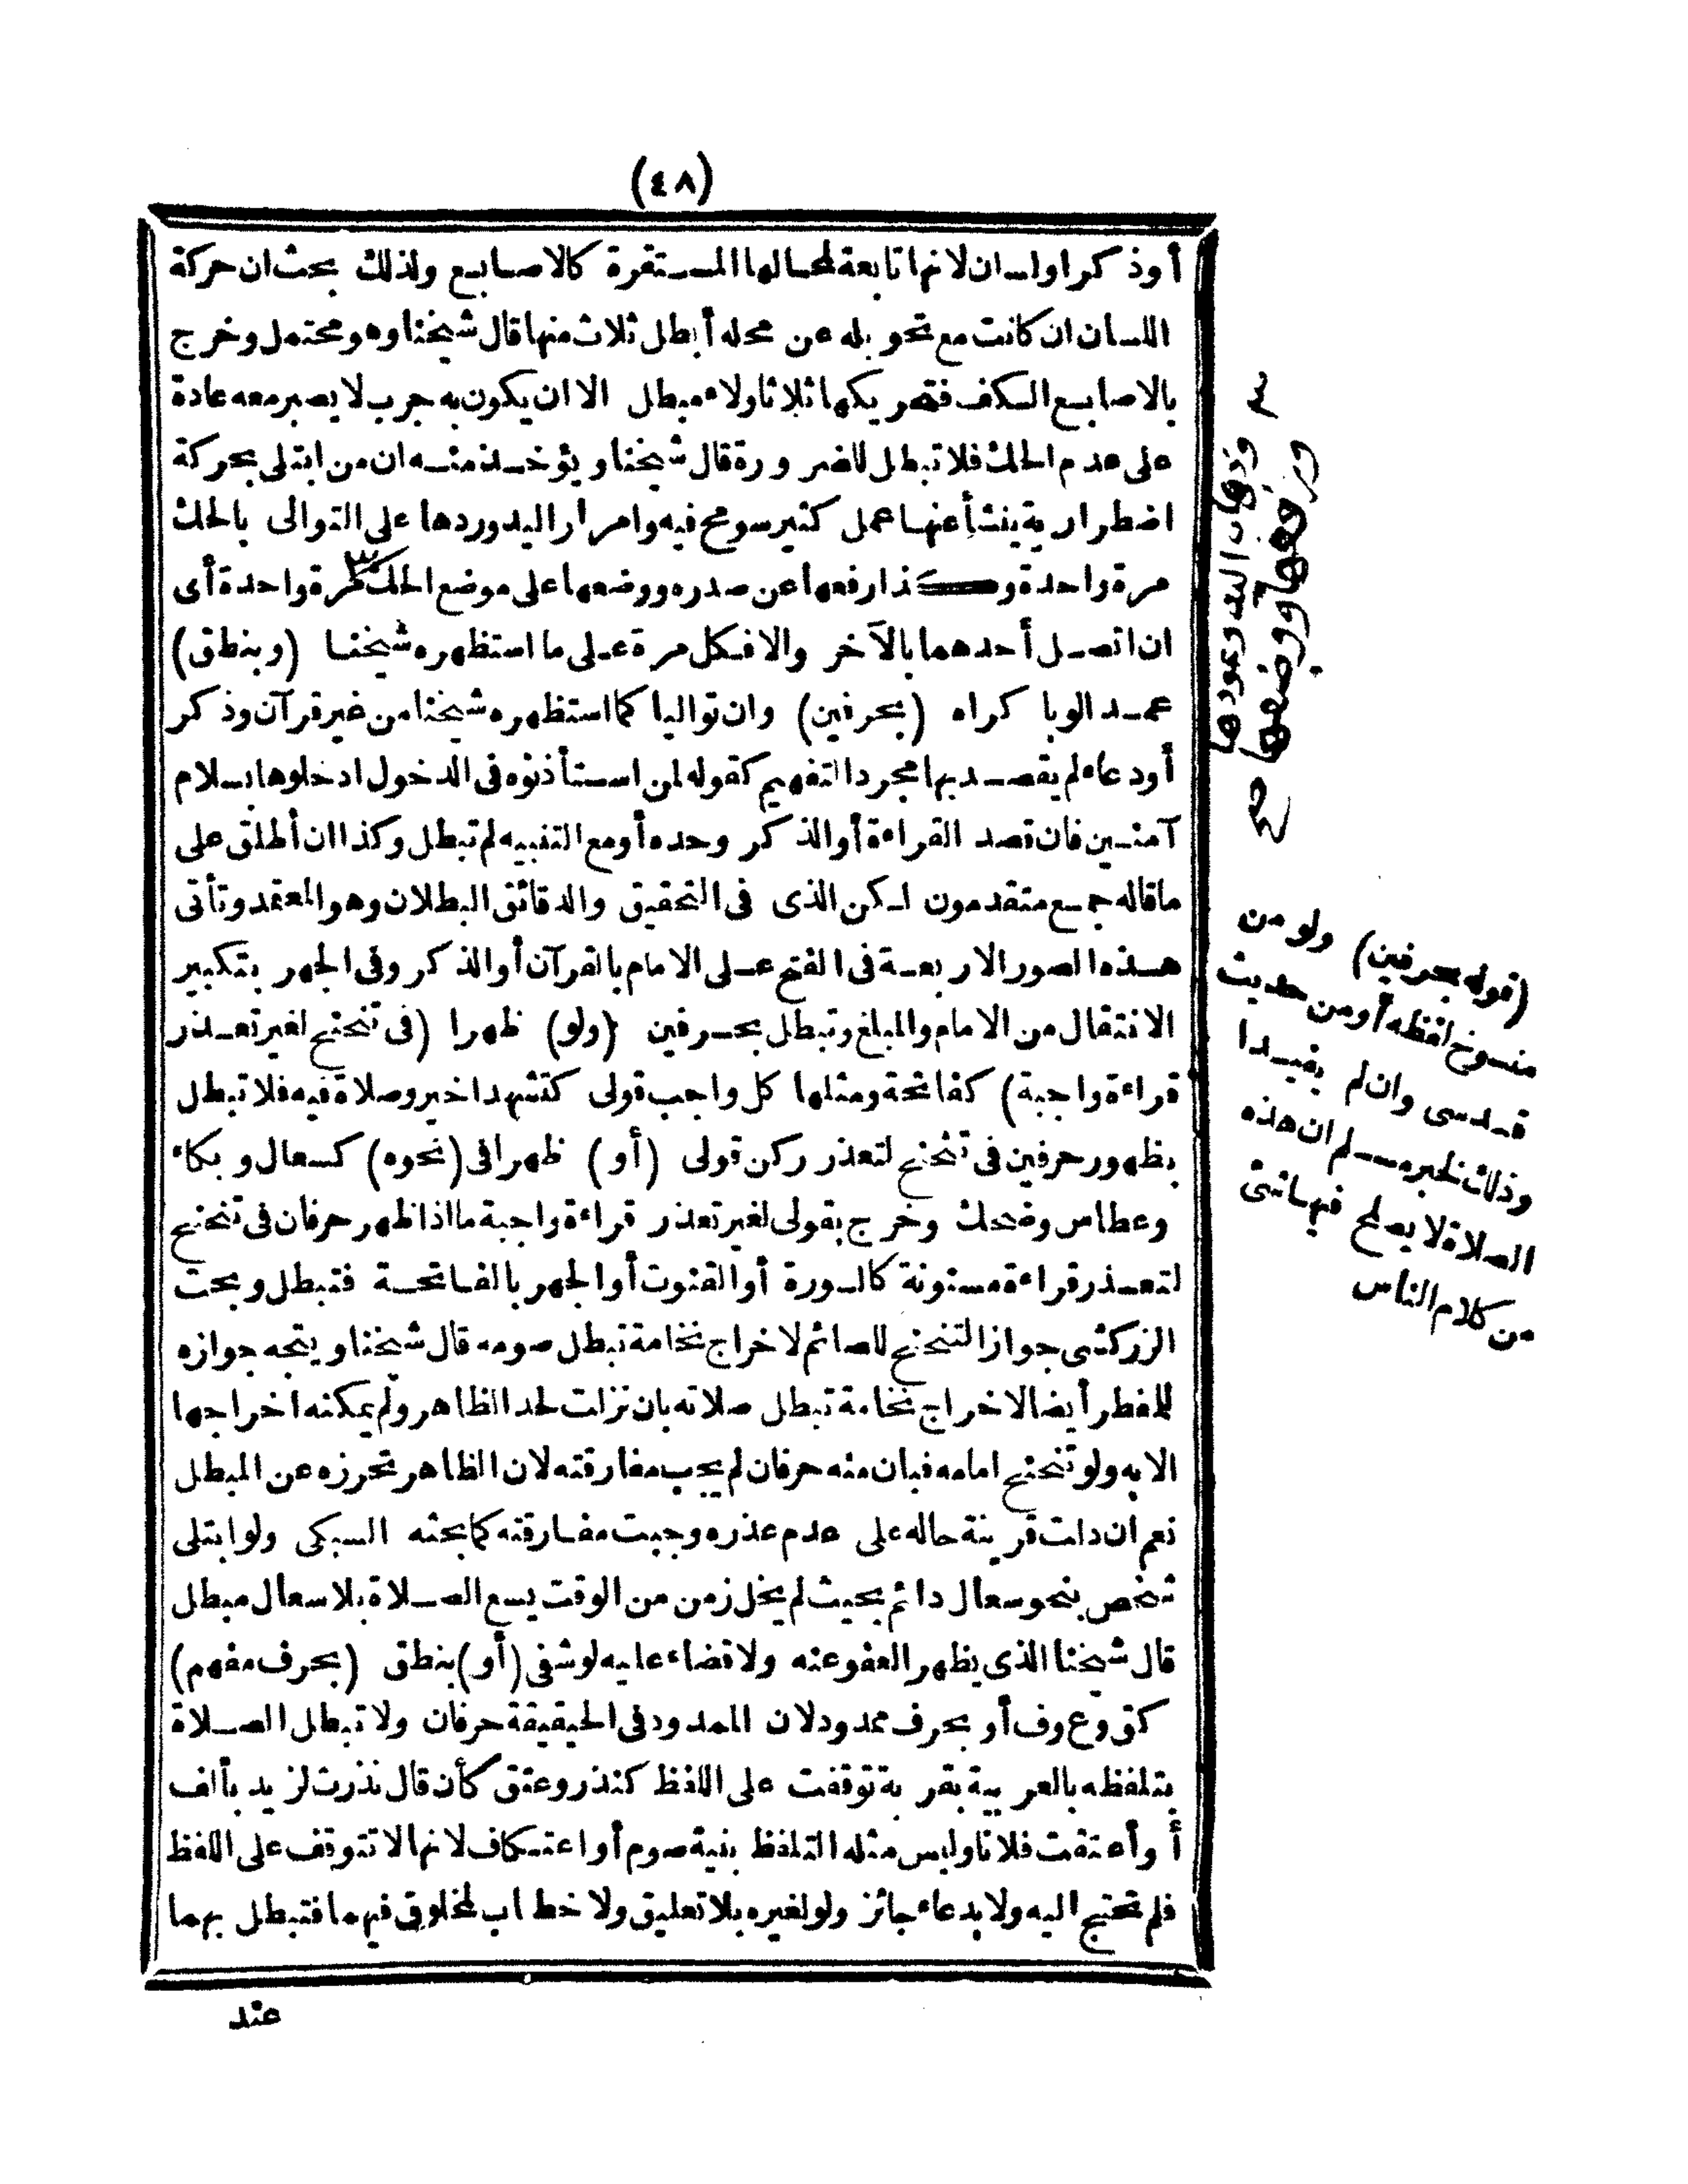 (٤٨)
أوذكر اولسان لانها تابعة لمحالها المستقرة كالاصابع ولذلك بحث ان حركة
اللسان ان كانت مع تحويله عن محله أبطل ثلاث منها قال شيخنا وهو محتمل وخرج
بالاصابع الكف فتحريكها ثلاثا ولاء مبطل الا ان يكون به جرب لا يصبر معه عادة
على عدم الحك فلا تبطل للضرورة قال شيخنا ويؤخذ منه ان من ابتلى بحركة
اضطرارية ينشأ عنها عمل كثير سومح فيه وامرار اليد وردها على التوالى بالحك
مرة واحدة وكذا رفعها عن صدره ووضعها على موضع الحك ٣ مرة واحدة أى
ان اتصل أحدهما بالآخر والا فكل مرة على ما استظهره شيخنا (وبنطق)
عمدا ولو باكراه (بحرفين) وان تواليا كما استظهره شيخنا من غير قرآن وذكر
أودعاء لم يقصد بها مجرد التفهيم كقوله لمن استأذنوه فى الدخول ادخلوها بسلام
آمنين فان قصد القراءة أوالذكر وحده أومع التنبيه لم تبطل وكذا ان أطلق على
ماقاله جمع متقدمون لكن الذى فى التحقيق والدقائق البطلان وهو المعتمد وتأتى
هذه الصور الاربعة فى الفتح على الامام بالقرآن أوالذكر وفى الجهر بتكبير
الانتقال من الامام والمبلغ وتبطل بحرفين (ولو) ظهرا (فى تنحنح لغير تعذر
قراءة واجبة) كفاتحة ومثلها كل واجب قولى كتشهد اخير وصلاة فيه فلا تبطل
بظهور حرفين فى تنحنح لتعذر ركن قولى (أو) ظهرا فى (نحوه) كسعال وبكاء
وعطاس وضحك وخرج بقولى لغير تعذر قراءة واجبة ما اذا ظهر حرفان فى تنحنح
لتعذر قراءة مسنونة كالسورة أوالقنوت أوالجهر بالفاتحة فتبطل وبحث
الزركشى جواز التنحنح للصائم لاخراج نخامة تبطل صومه قال شيخنا ويتجه جوازه
للمفطر أيضا لاخراج نخامة تبطل صلاته بان نزلت لحد الظاهر ولم يمكنه اخراجها
الا به ولو تنحنح امامه فبان منه حرفان لم يجب مفارقته لان الظاهر تحرزه عن المبطل
نعم ان دلت قرينة حاله على عدم عذره وجبت مفارقته كما بحثه السبكى ولو ابتلى
شخص بنحو سعال دائم بحيث لم يخل زمن من الوقت يسع الصلاة بلا سعال مبطل
قال شيخنا الذى يظهر العفو عنه ولا قضاء عليه لو شفى (أو) بنطق (بحرف مفهم)
كق وع وف أو بحرف ممدود لان الممدود فى الحقيقة حرفان ولا تبطل الصلاة
بتلفظه بالعربية بقربة توقفت على اللفظ كنذر وعتق كأن قال نذرت لزيد بألف
أ وأعتقت فلانا وليس مثله التلفظ بنية صوم أو اعتكاف لانها لا تتوقف على اللفظ
فلم تحتج اليه ولا بدعاء جائز ولو لغيره بلا تعليق ولا خطاب لمخلوق فيهما فتبطل بهما
عند
٣
وذهاب اليد وعودها
ورفعها ووضعها
صح
(قوله بحرفين) ولو من
منسوخ لفظه أو من حديث
قدسى وان لم يفيدا
وذلك لخبر مسلم ان هذه
الصلاة لا يصلح فيها شئ
من كلام الناس